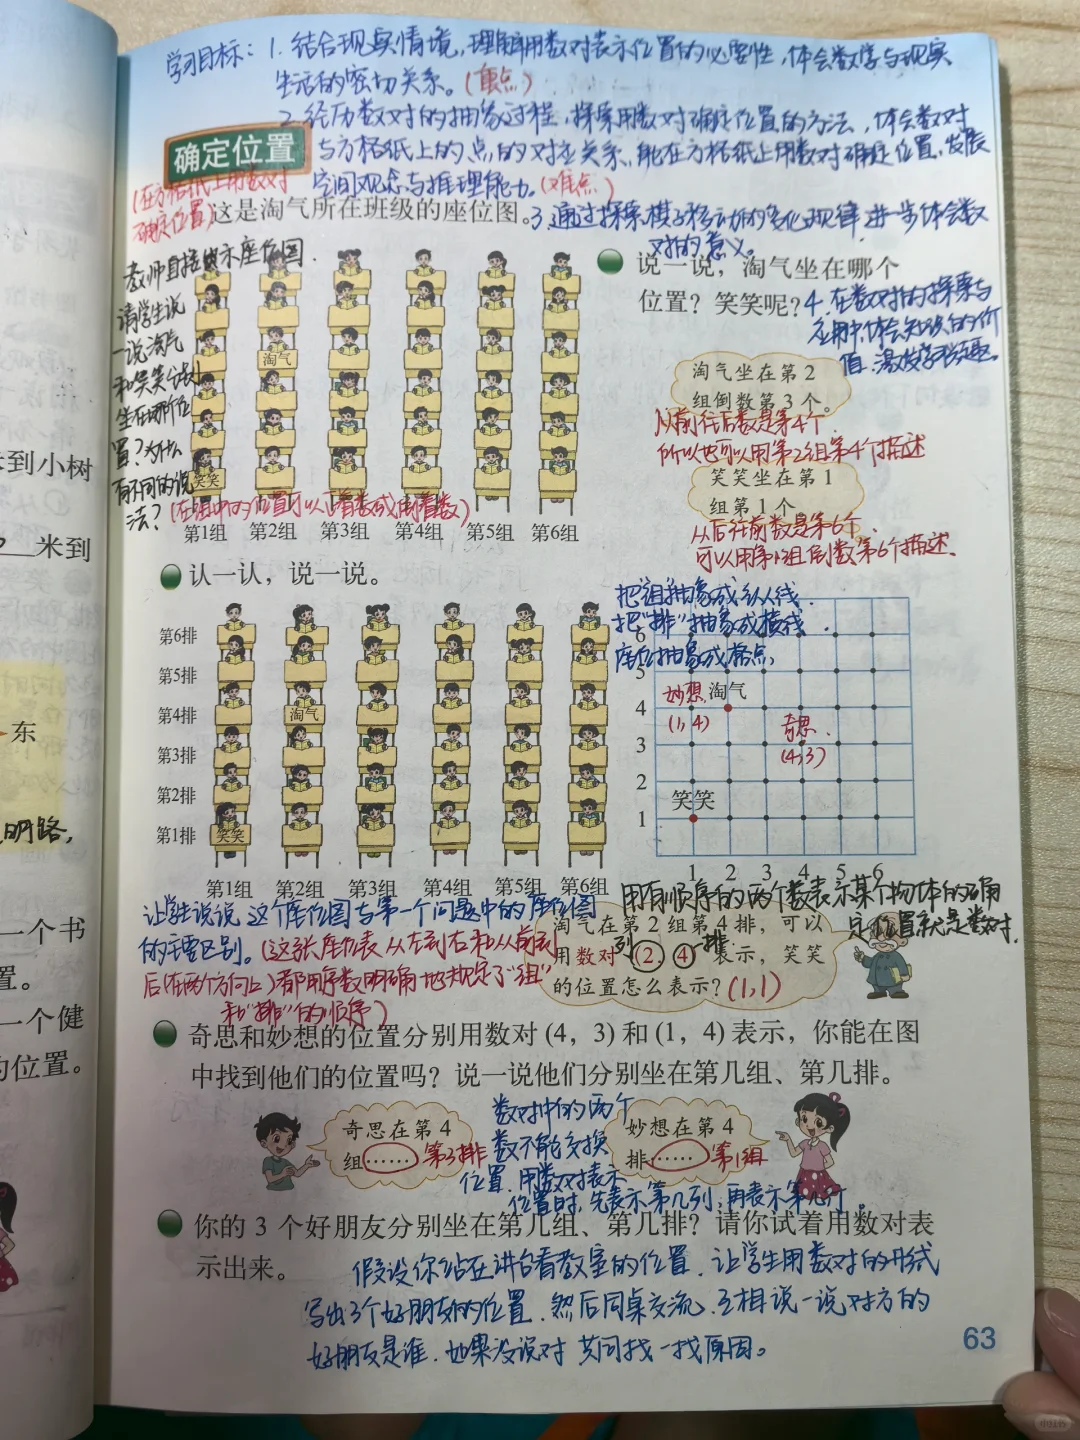 学习目标：1. 结合现实情境，理解用数对表示位置的必要性，体会数学与现实
生活的密切关系。(重点)
2. 经历数对的抽象过程，探索用数对确定位置的方法，体会数对
与方格纸上的点的对应关系，能在方格纸上用数对确定位置，发展
空间观念与推理能力。(难点)
确定位置
(在方格纸上用数对
确定位置)
这是淘气所在班级的座位图。
3. 通过探索
移动的变化规律，进一步体会数
对的意义。
4. 在数对的探索与
应用中，体会知识的价
值，激发学习兴趣。
教师直接出示座位图.
请学生说
一说淘气
和笑笑分别
坐在哪个位
置？为什么
有不同的说
法？
(在组中的位置可以正着数或倒着数)
说一说，淘气坐在哪个
位置？笑笑呢？
淘气坐在第 2
组倒数第 3 个。
从前往后数是第4个.
所以也可以用第2组第4个描述
笑笑坐在第 1
组第 1 个
从后往前数是第6个.
可以用第1组倒数第6个描述.
淘气
笑笑
第1组 第2组 第3组 第4组 第5组 第6组
认一认，说一说。
第6排
第5排
第4排
淘气
第3排
第2排
第1排
笑笑
第1组 第2组 第3组 第4组 第5组 第6组
把“组”抽象成纵线.
把“排”抽象成横线.
座位抽象成格点.
6
5
4
3
2
1
妙想 淘气
(1,4)
奇思.
(4,3)
笑笑
1 2 3 4 5 6
用有顺序的两个数表示某个物体的确
定位置就是数对.
让学生说说，这个座位图与第一个问题中的座位图
的主要区别。(这张座位表从左到右和从前到
后(在两个方向上)都用序数明确地规定了“组”
和“排”的顺序)
淘气在第 2 组第 4 排，可以
列 排
用数对 (2，4) 表示，笑笑
的位置怎么表示？(1,1)
奇思和妙想的位置分别用数对 (4，3) 和 (1，4) 表示，你能在图
中找到他们的位置吗？说一说他们分别坐在第几组、第几排。
奇思在第 4
组…… 第3排
数对中的两个
数不能交换
位置. 用数对表示
位置时，先表示第几列，再表示第几行.
妙想在第 4
排…… 第1组
你的 3 个好朋友分别坐在第几组、第几排？请你试着用数对表
示出来。
假设你站在讲台看教室的位置. 让学生用数对的形式
写出3个好朋友的位置. 然后同桌交流. 互相说一说对方的
好朋友是谁. 如果没说对 共同找一找原因。
63
到小树
米到
东
明路，
一个书
置。
一个健
的位置。
小红书